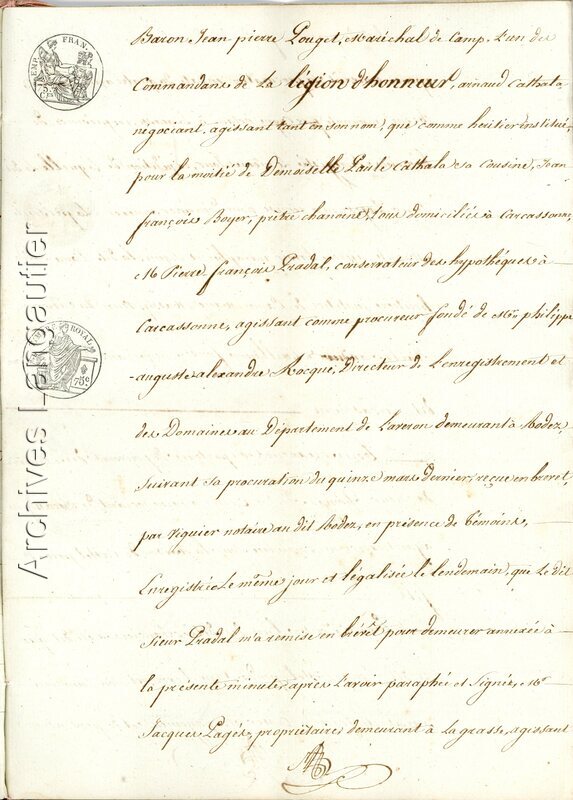 Baron Jean-pierre Pouget, Maréchal de Camp, L'un des
Commandans de La légion d'honneur, arnaud Cathala
négociant, agissant tant en son nom, que comme héritier institué,
pour la moitié de Demoiselle Paule Cathala sa Cousine, Jean
françois Boyer, prêtre chanoine, tous domiciliés à Carcassonne,
M Pierre françois Pradal, conservateur des hypothéques à
Carcassonne, agissant comme procureur fondé de Mr philippe
auguste alexandre Rocque, Directeur de L'enregistrement et
des Domaines au Département de L'averon demeurant à Rodez
suivant sa procuration du quinze mars dernier, reçue en brevet,
par Viguier notaire au dit Rodez, en présence de témoins,
Enregistrée Le même jour et légalisée le lendemain, que Le dit
Sieur Pradal m'a remise en brévet pour demeurer annexée à
la présente minute, après L'avoir paraphée et Signée, Mr
Jacques Pagés, propriétaire, demeurant à La grasse, agissant
TIMP. FRAN.
ROYAL
75c
Archives Langautier